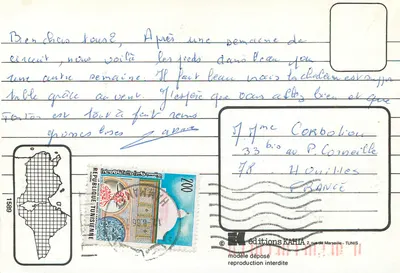 Ben chers tous 2, Après une semaine de
circuit, nous voilà les pieds dans l'eau pour
une autre semaine. Il fait beau mais la chaleur est suppor
table grâce au vent. J'espère que vous allez bien et que
est tout à fait remis
grosses bises
M Mme
33 bis av P. Corneille
78 Houilles
FRANCE
200
REPUBLIQUE TUNISIENNE
1989
© éditions KAHIA, 2, rue de Marseille - TUNIS
modèle déposé
reproduction interdite